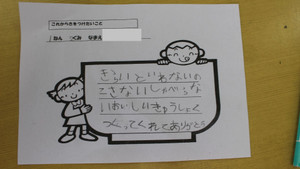 これからきをつけたいこと
1 ねん つくみ なまえ
きらいといわないの
こさないしゃべらな
いおいしいきゅうしょく
つくってくれてありがとう